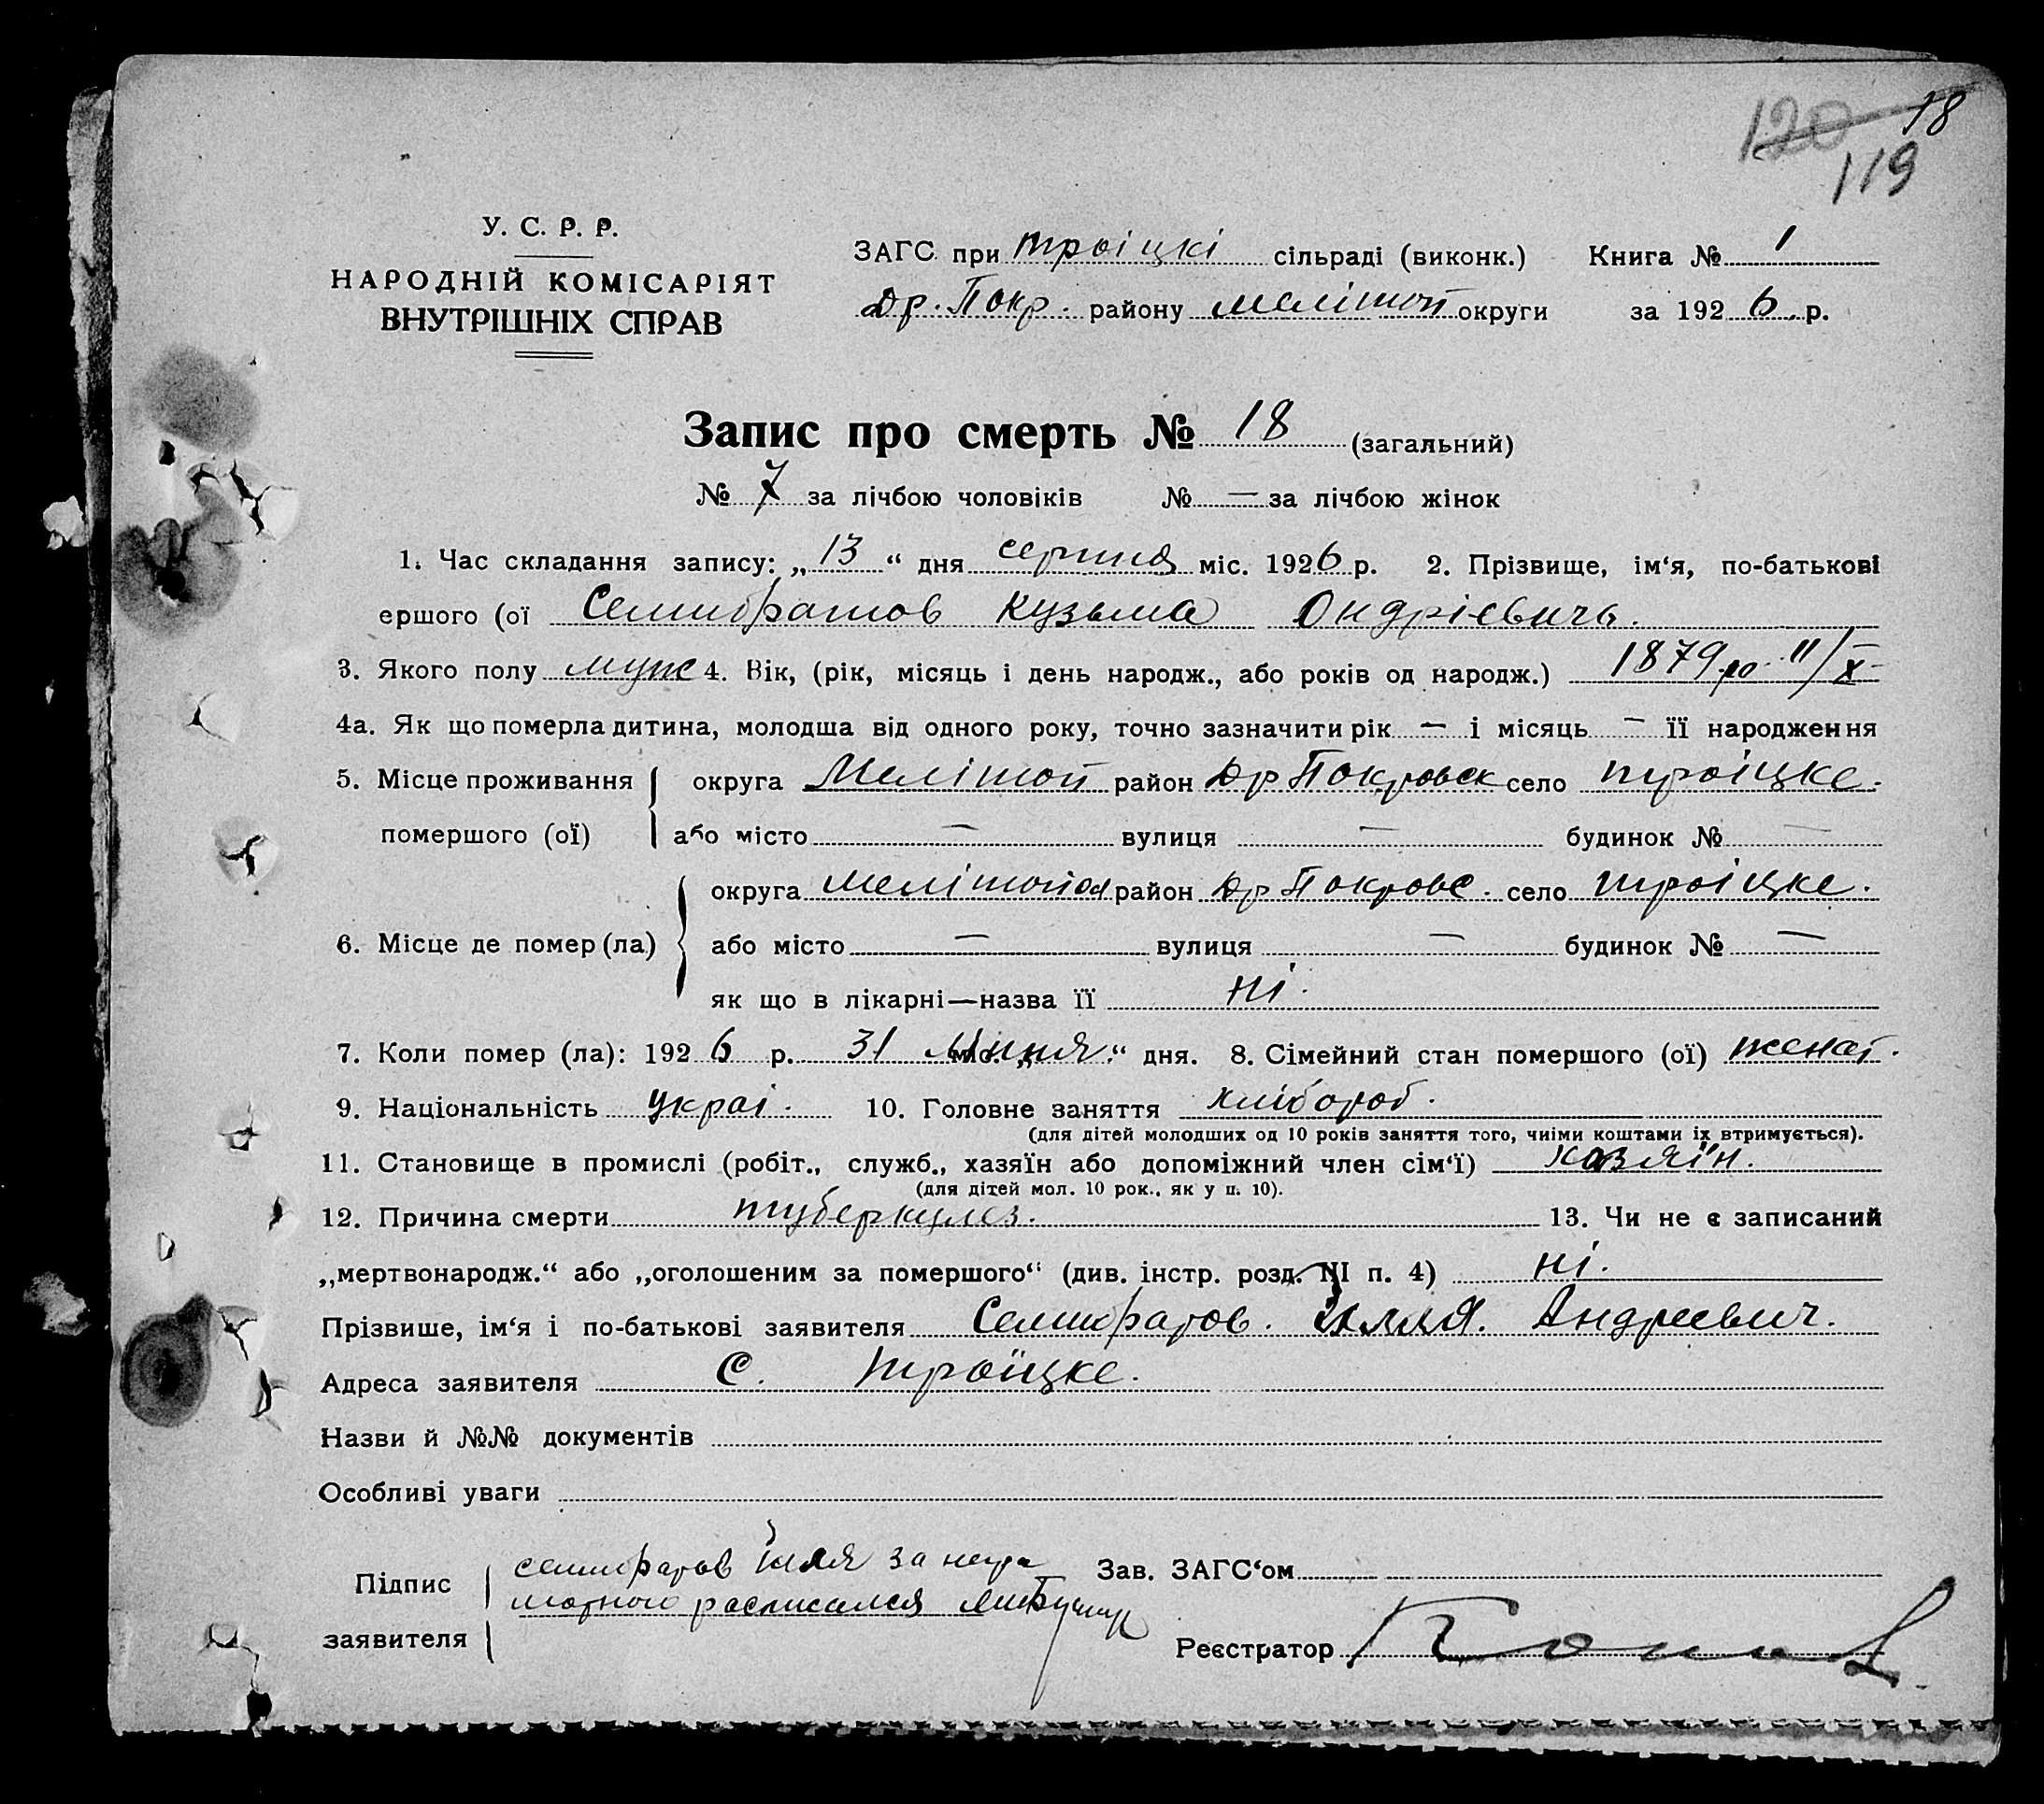 120 18
119
У. С. Р. Р.
НАРОДНІЙ КОМІСАРІЯТ
ВНУТРІШНІХ СПРАВ
ЗАГС при троіцкі сільраді (виконк.) Книга № 1
Др. Покр. району мелітоп округи за 1926 р.
Запис про смерть № 18 (загальний)
№ 7 за лічбою чоловіків № — за лічбою жінок
1. Час складання запису: „13“ дня серпня міс. 1926 р. 2. Прізвище, ім‘я, по-батькові
ершого (ої Семибратов Кузьма Ондрієвичь.
3. Якого полу муж 4. Вік, (рік, місяць і день народж., або років од народж.) 1879 ро 11/X
4а. Як що померла дитина, молодша від одного року, точно зазначити рік — і місяць — її народження
5. Місце проживання округа Мелітоп район Др Покровск село троіцке.
помершого (ої) або місто — вулиця — будинок № —
округа Мелітопол район Др Покровс. село троіцке.
6. Місце де помер (ла) або місто — вулиця — будинок № —
як що в лікарні—назва її ні.
7. Коли помер (ла): 1926 р. 31 міс. „липня“ дня. 8. Сімейний стан помершого (ої) женат.
9. Національність украі. 10. Головне заняття хлібороб.
(для дітей молодших од 10 років заняття того, чиїми коштами їх втримується).
11. Становище в промислі (робіт., служб., хазяїн або допоміжний член сім‘ї) хазяїн.
(для дітей мол. 10 рок., як у п. 10).
12. Причина смерти туберкулез. 13. Чи не є записаний
„мертвонародж.“ або „оголошеним за помершого“ (див. інстр. розд. III п. 4) ні.
Прізвише, ім‘я і по-батькові заявителя Семибратов. Илля. Андреевич.
Адреса заявителя С. Троїцке.
Назви й №№ документів
Особливі уваги
Підпис семибратов Илля за негра
мотного росписался
заявителя
Зав. ЗАГС‘ом
Реєстратор